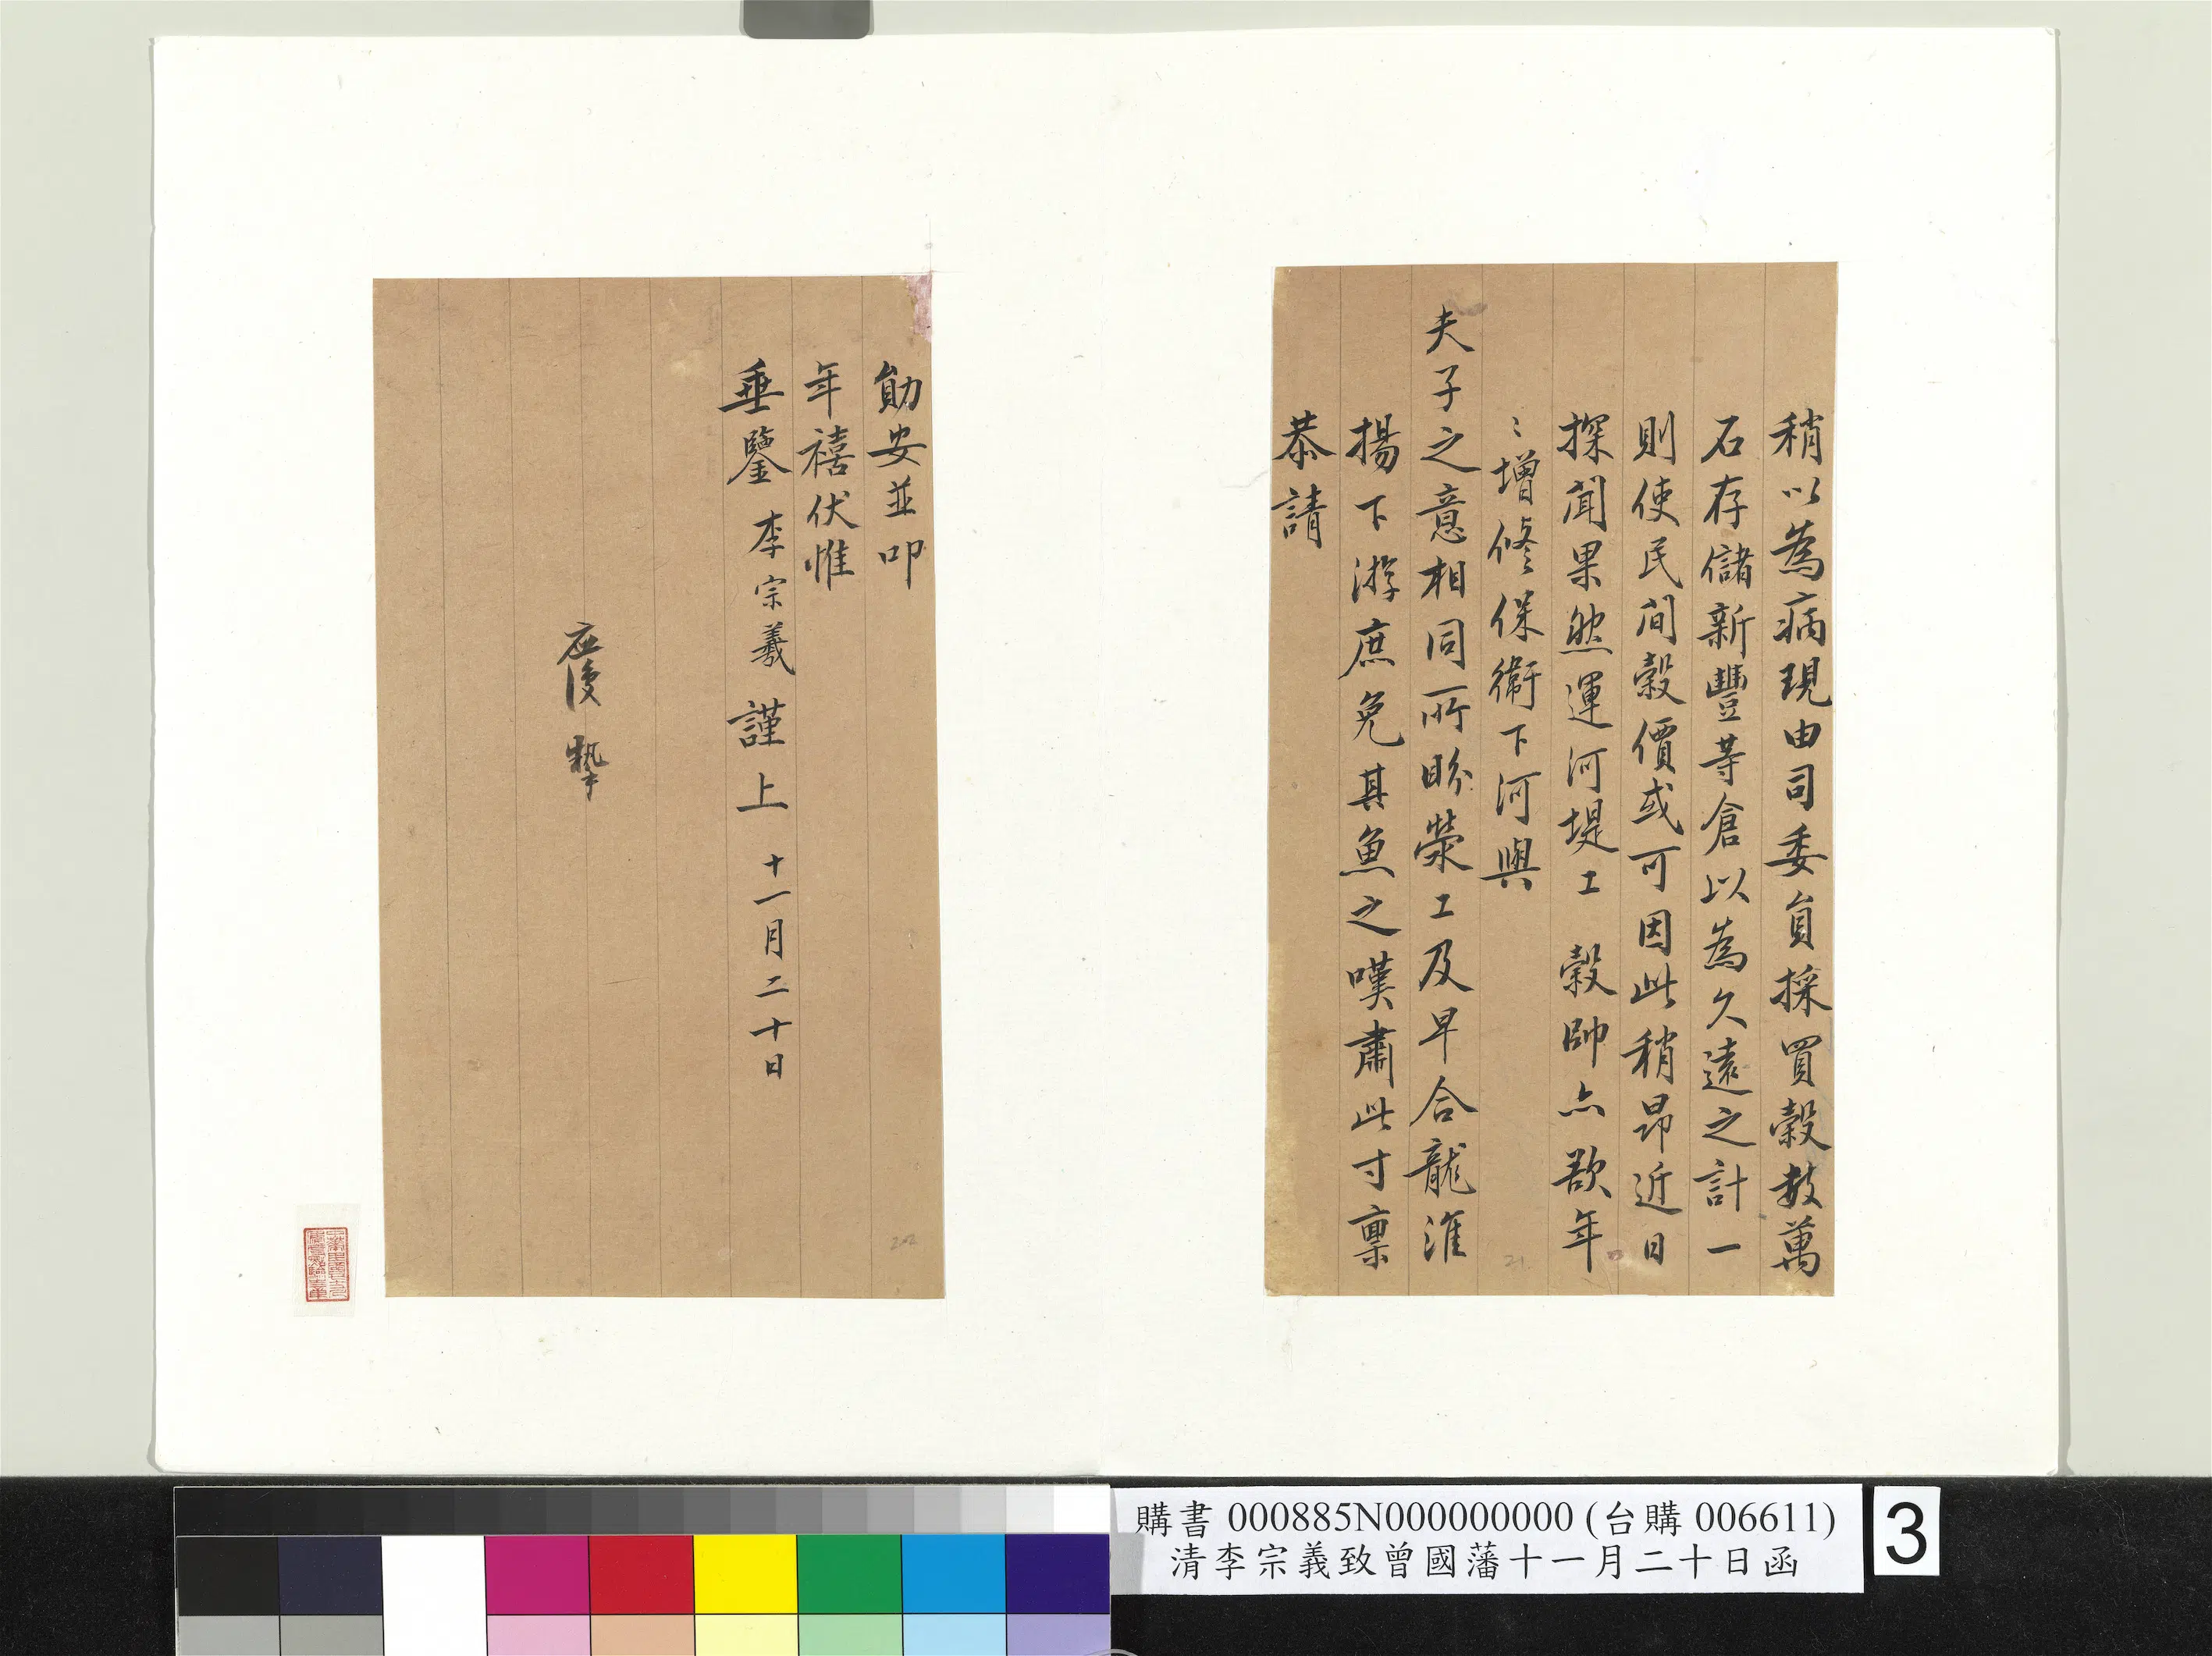 稍以為病現由司委員採買穀數萬
石存儲新豐等倉以為久遠之計一
則使民間穀價或可因此稍昂近日
探聞果然運河堤工 穀帥亦欲年
〻增修保衛下河與
夫子之意相同所盼滎工及早合龍淮
揚下游庶免其魚之嘆肅此寸稟
恭請
勛安並叩
年禧伏惟
垂鑒 李宗羲 謹上 十一月二十日
應復
21
202
購書 000885N000000000 (台購 006611)
清李宗義致曾國藩十一月二十日函
3